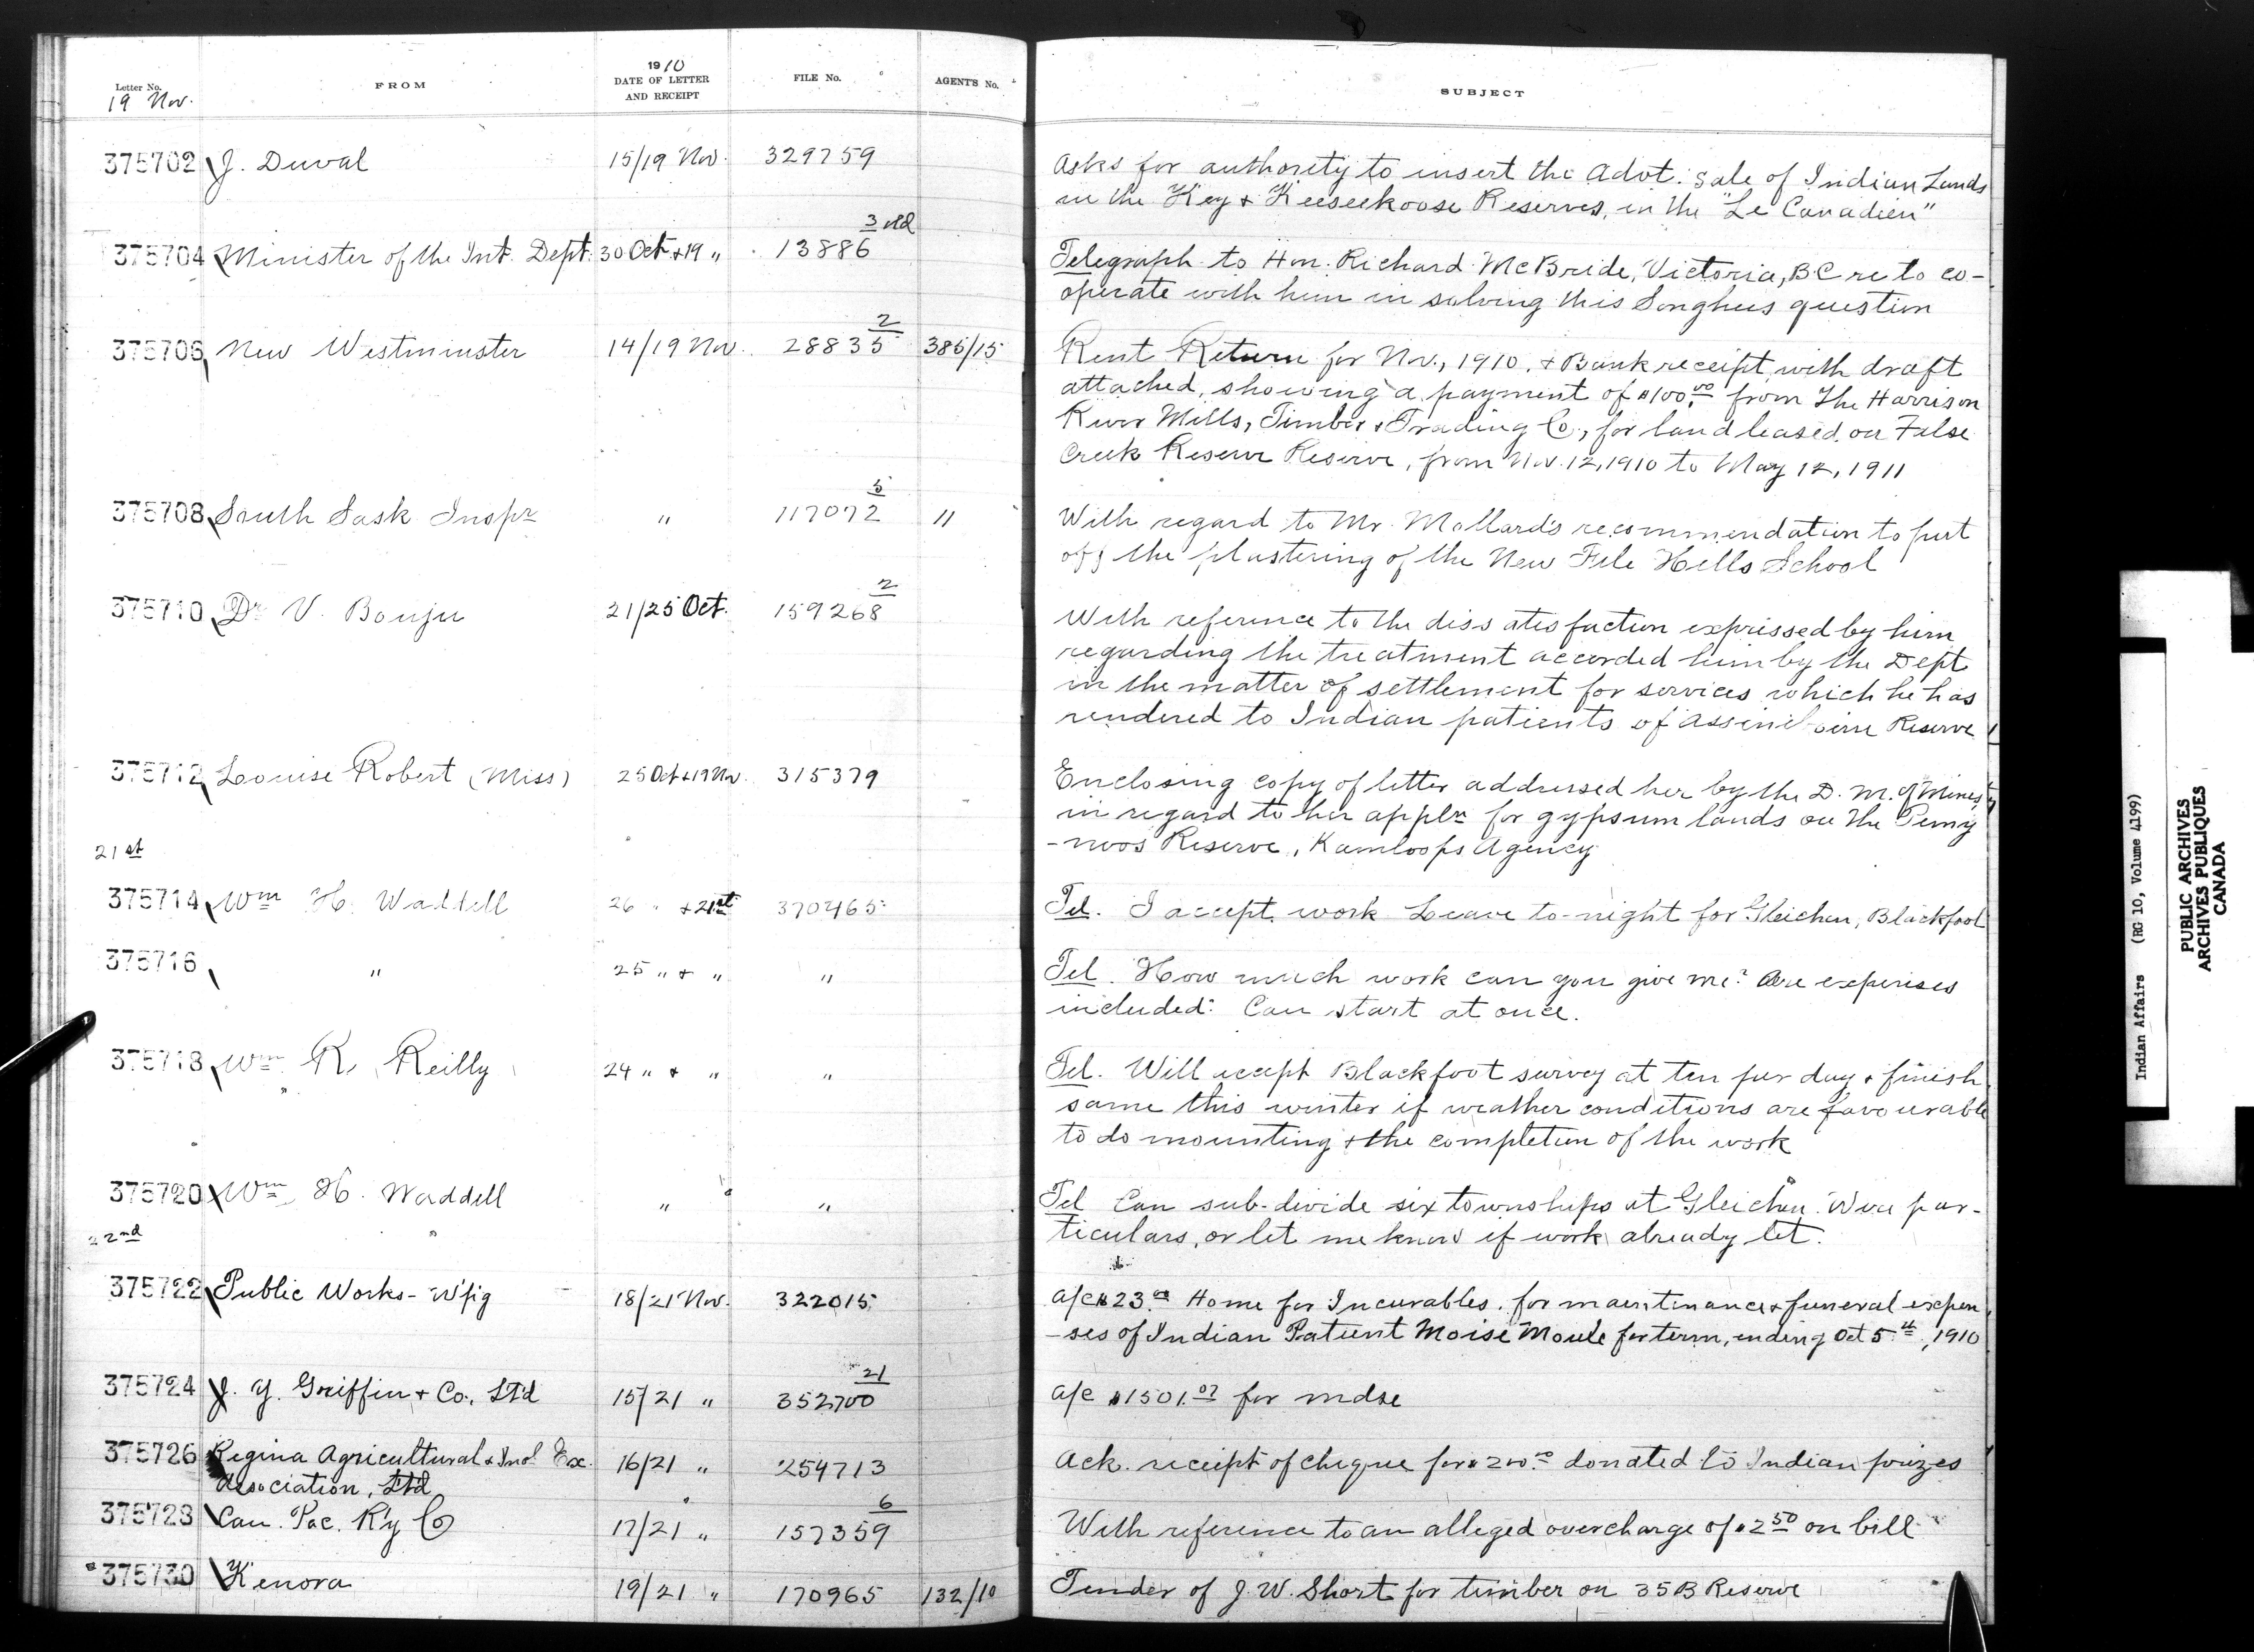 Letter No. FROM 1910 DATE OF LETTER AND RECEIPT FILE No. AGENT'S No. SUBJECT
19 Nov.
375702 J. Duval 15/19 Nov. 329759 Asks for authority to insert the Advt. Sale of Indian Lands
in the Key & Keeseekoose Reserves, in the "Le Canadien"
375704 Minister of the Int. Dept. 30 Oct & 19 " 13886 3 Telegraph to Hon. Richard McBride, Victoria, BC re to co-
operate with him in solving this Songhees question
375706 New Westminster 14/19 Nov. 28835 2 385/15 Rent Return for Nov., 1910, & Bank receipt, with draft
attached, showing a payment of $100.00 from The Harrison
River Mills, Timber & Trading Co, for land leased on False
Creek Reserve Reserve, from Nov. 12, 1910 to May 12, 1911
375708 South Sask Inspr " 117072 5 " With regard to Mr. Mollard's recommendation to put
off the plastering of the New File Hills School
375710 Dr V. Bouju 21/25 Oct. 159268 2 With reference to the dissatisfaction expressed by him
regarding the treatment accorded him by the Dept
in the matter of settlement for services which he has
rendered to Indian patients of Assiniboine Reserve
375712 Louise Robert (Miss) 25 Oct & 19 Nv. 315379 Enclosing copy of letter addressed her by the D. M. of Mines,
in regard to her appln for gypsum lands on the Pemy
-noos Reserve, Kamloops Agency
21st
375714 Wm H. Waddell 26 " & 21st 370465 Tel. I accept work Leave to-night for Gleichen, Blackfoot
375716 " 25 " & " " Tel. How much work can you give me? Are expenses
included? Can start at once.
375718 Wm R. Reilly 24 " & " " Tel. Will accept Blackfoot survey at ten per day & finish
same this winter if weather conditions are favourable
to do mounting & the completion of the work
375720 Wm H. Waddell " " Tel Can sub-divide six townships at Gleichen. Wire par-
ticulars, or let me know if work already let.
22nd
375722 Public Works - W'pig 18/21 Nov. 322015 a/c $23.00 Home for Incurables, for maintenance & funeral expen
-ses of Indian Patient Moise Moule for term, ending Oct 5th, 1910
375724 J. Y. Griffin & Co. Ltd 15/21 " 352700 21 a/c $1501.07 for mdse
375726 Regina Agricultural & Ind Ex. 16/21 " 254713 Ack. receipt of cheque for $200.00 donated to Indian prizes
Association, Ltd
375728 Can. Pac. R'y Co 17/21 " 157359 6 With reference to an alleged overcharge of $2.50 on bill
375730 Kenora 19/21 " 170965 132/10 Tender of J. W. Short for timber on 35B Reserve
Indian Affairs (RG 10, Volume 4199)
PUBLIC ARCHIVES
ARCHIVES PUBLIQUES
CANADA